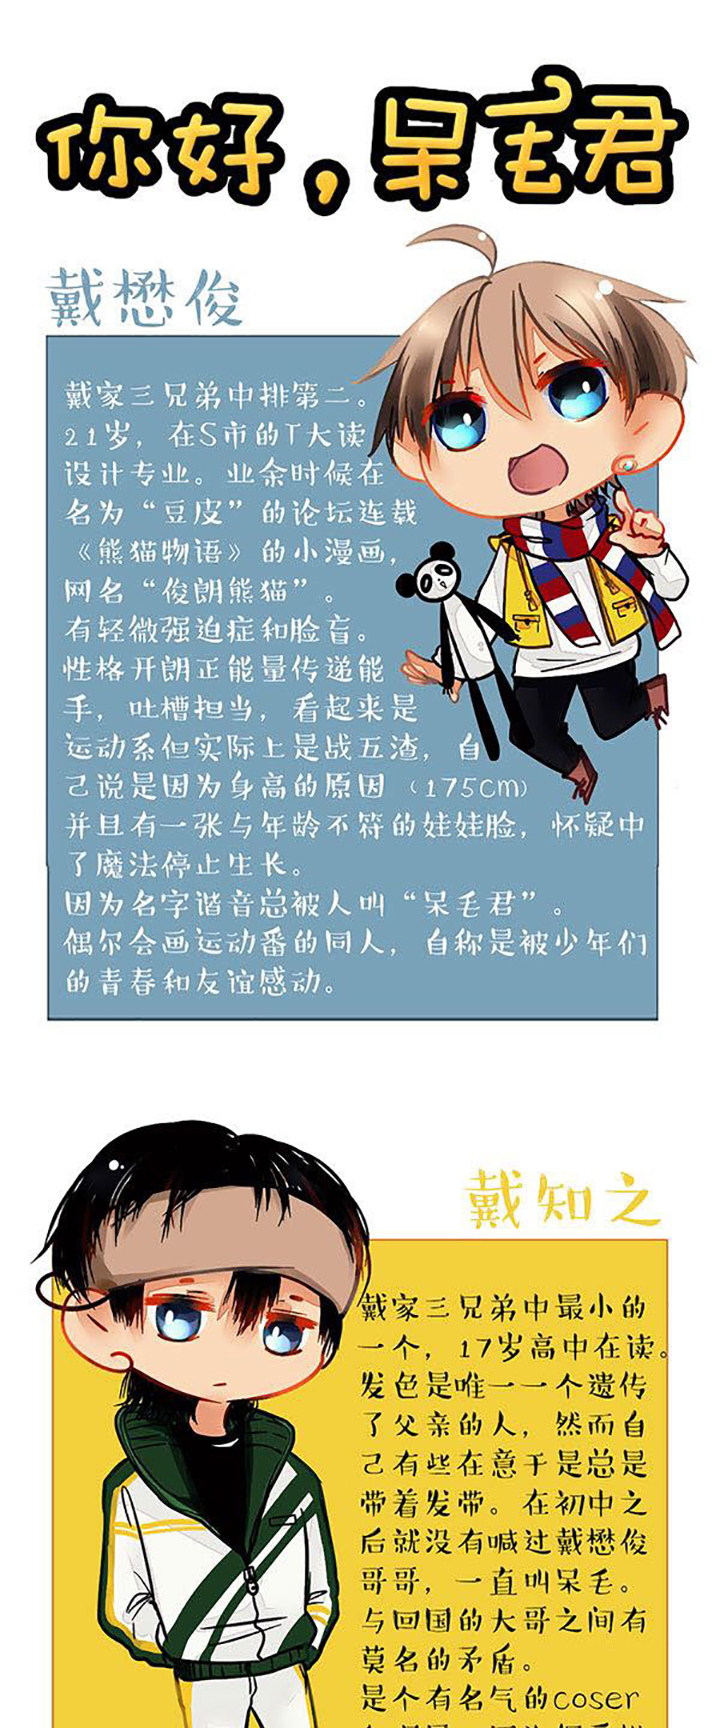 你好，呆毛君
戴懋俊
戴家三兄弟中排第二。
21岁，在S市的T大读
设计专业。业余时候在
名为“豆皮”的论坛连载
《熊猫物语》的小漫画，
网名“俊朗熊猫”。
有轻微强迫症和脸盲。
性格开朗正能量传递能
手，吐槽担当，看起来是
运动系但实际上是战五渣，自
己说是因为身高的原因（175cm）
并且有一张与年龄不符的娃娃脸，怀疑中
了魔法停止生长。
因为名字谐音总被人叫“呆毛君”。
偶尔会画运动番的同人，自称是被少年们
的青春和友谊感动。
戴知之
戴家三兄弟中最小的
一个，17岁高中在读。
发色是唯一一个遗传
了父亲的人，然而自
己有些在意于是总是
带着发带。在初中之
后就没有喊过戴懋俊
哥哥，一直叫呆毛。
与回国的大哥之间有
莫名的矛盾。
是个有名气的coser